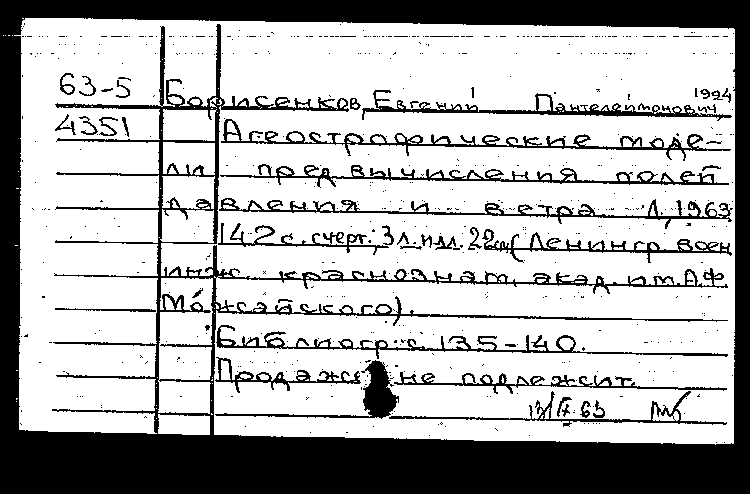 63-5 Борисенков, Евгений Пантелеймонович, 1924
4351 Агеострофические моде-
ли предвычисления полей
давления и ветра Л, 1963
142 с. с черт.; 3 л. илл. 22 см (Ленингр. воен
инж. краснознам. акад. им. А.Ф.
Можайского).
Библиогр: с. 135-140.
Продаже не подлежит.
63